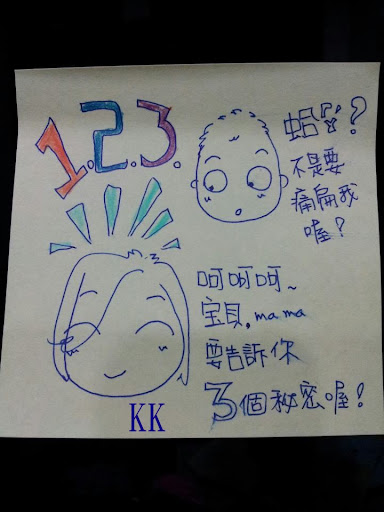 1.2.3.
蛤?
不是要
痛扁我
喔?
呵呵呵~
宝貝,mama
要告訴你
3個秘密喔!
KK